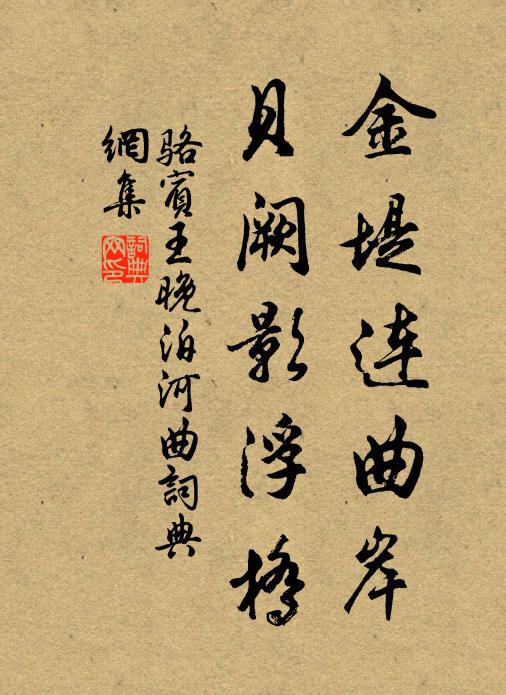 金堤连曲岸
貝阙影浮橋
駱賓王晚泊河曲詞典
網集
詞典
网印